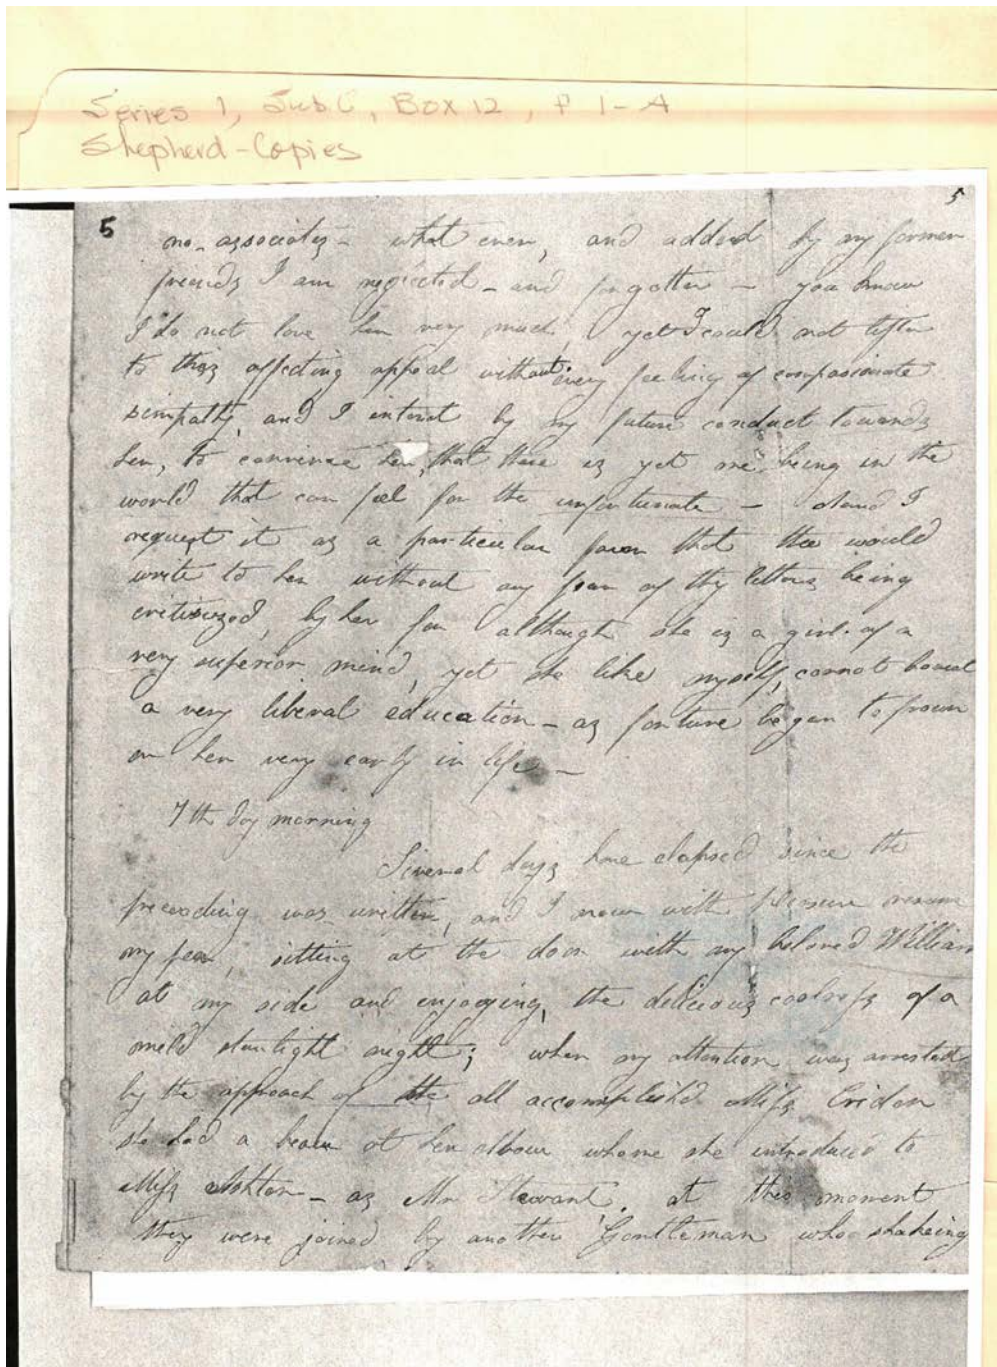 Series 1, Sub C, Box 12, F 1-A
Shepherd-Copies
5
5
no associates - what ever, and added by my former
friends I am neglected - and forgotten - you know
I do not love her very much, yet I could not listen
to this affecting appeal without every feeling of compasionate
simpathy, and I intend by my future conduct towards
her, to convince her, that there is yet one being in the
world that can feel for the unfortunate - and I
request it as a particular favor that thee would
write to her without any fear of thy letters being
critisized, by her for although she is a girl of a
very superior mind, yet she like myself, cannot boast
a very liberal education - as fortune began to frown
on her very early in life -
7th day morning
Several days have elapsed since the
preceeding was written, and I now with pleasure resume
my pen, sitting at the door with my beloved William
at my side and enjoying, the delicious coolness of a
mild starlight night; when my attention was arrested
by the approach of the all accomplish'd Miss
she had a beau at her elbow whome she introduced to
Miss Ashton - as Mr Stewart. at this moment
they were joined by another Gentleman who shakeing